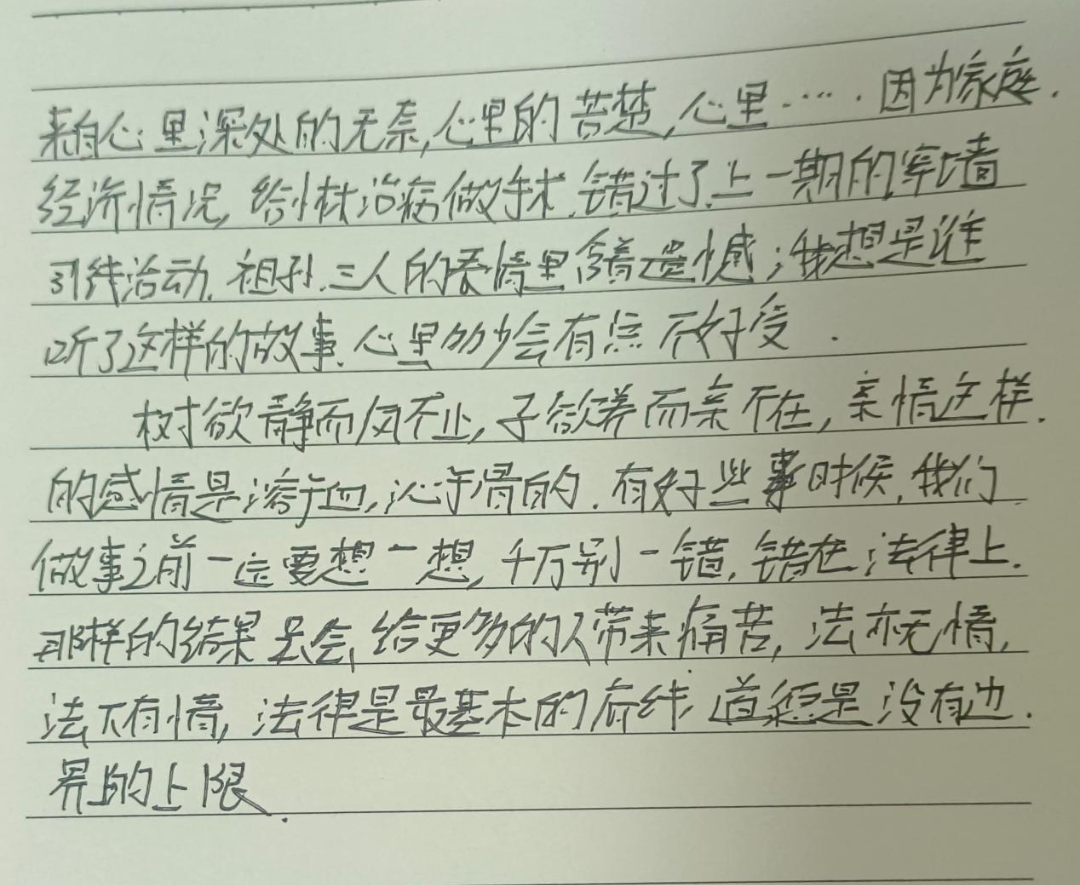 来自心里深处的无奈,心里的苦楚,心里……因为家庭.
经济情况,给小林治病做手术.错过了上一期的穿墙
引线活动.祖孙三人的亲情里含着遗憾;我想是谁
听了这样的故事.心里多少会有点不好受.
树欲静而风不止,子欲养而亲不在,亲情这样.
的感情是溶于血,沁于骨的.有好些事时候,我们
做事之前一定要想一想,千万别一错,错在法律上.
那样的结果只会给更多的人带来痛苦,法亦无情,
法下有情,法律是最基本的底线.道德是没有边.
界的上限.